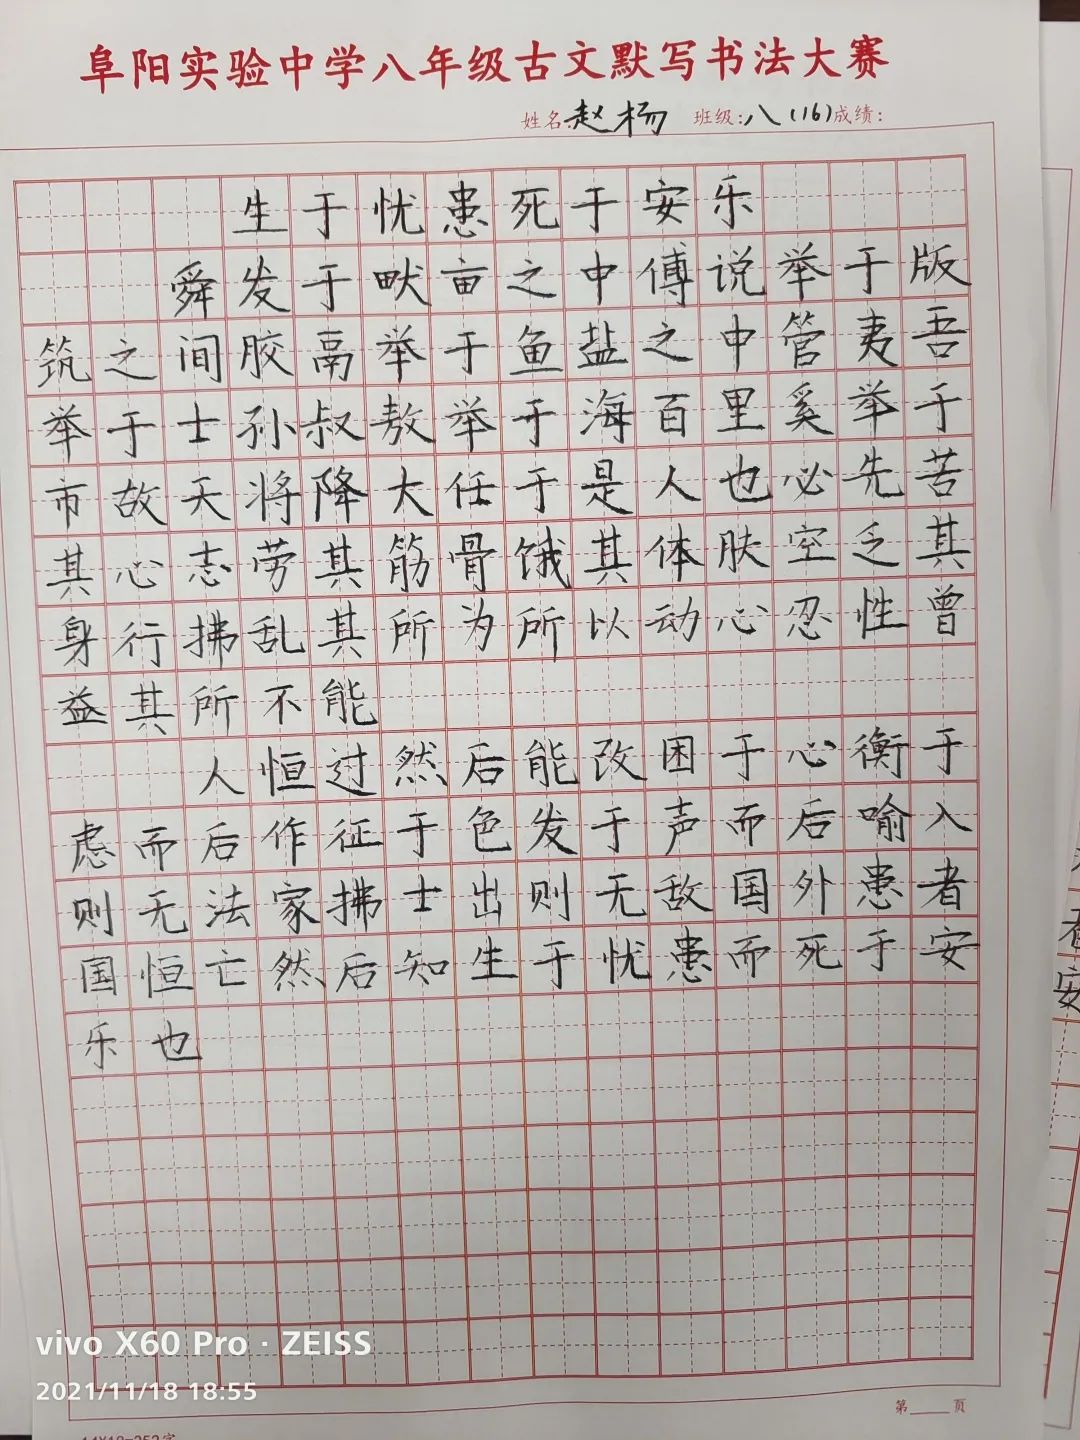 阜阳实验中学八年级古文默写书法大赛
姓名:赵杨 班级:八(16)成绩:
生于忧患死于安乐
舜发于畎亩之中傅说举于版
筑之间胶鬲举于鱼盐之中管夷吾
举于士孙叔敖举于海百里奚举于
市故天将降大任于是人也必先苦
其心志劳其筋骨饿其体肤空乏其
身行拂乱其所为所以动心忍性曾
益其所不能
人恒过然后能改困于心衡于
虑而后作征于色发于声而后喻入
则无法家拂士出则无敌国外患者
国恒亡然后知生于忧患而死于安
乐也
vivo X60 Pro · ZEISS
2021/11/18 18:55
第____页